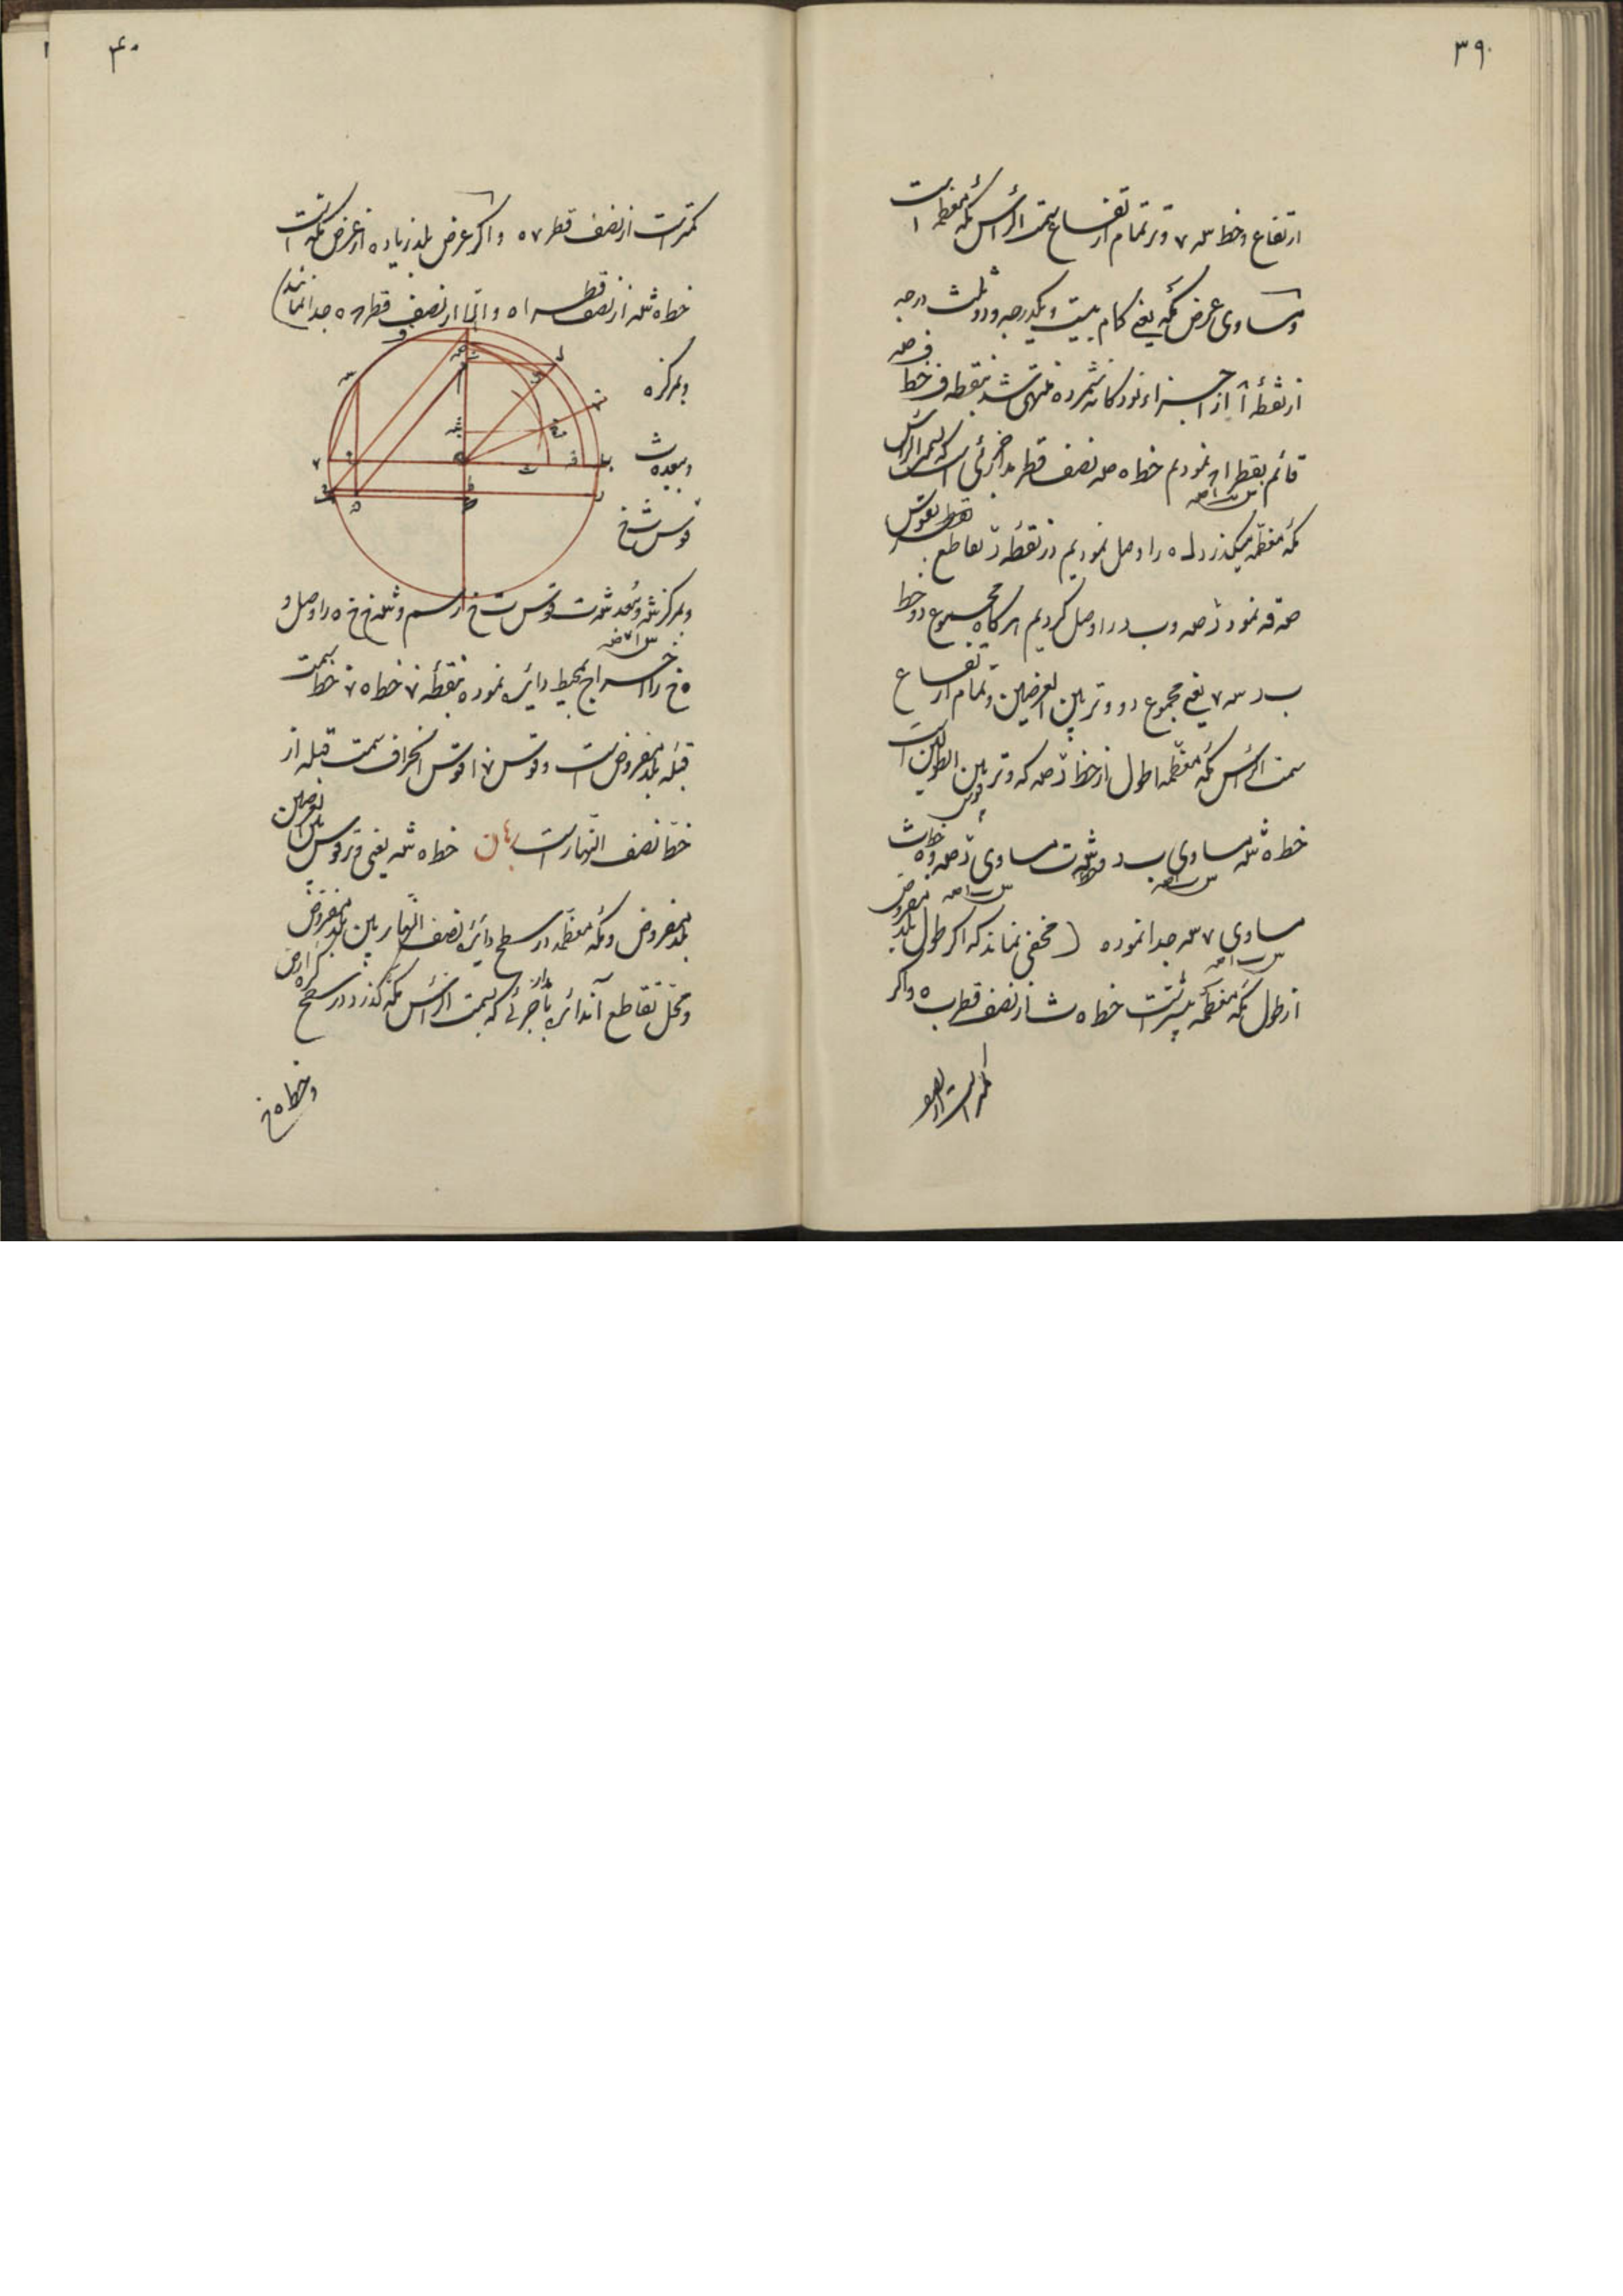 ۳۹
ارتفاع وخط سه ۷ وتر تمام ارتفاع سمت الرأس مکه معظمه است
ومساوی عرض مکه یعنی کام بیست ویکدرجه ودوثلث درجه
از نقطهٔ آ از اجزاء نودکانه شمرده منتهی شد بنقطه ف خط ف صه
قائم بقطر اه نمودیم خط ه صه نصف قطر مدار جزئی است که بسمت الرأس
مکه معظمه میکذرد له را وصل نمودیم در نقطه ر تقاطع بقوس
صه قه نمود ر صه و ب د را وصل کردیم هرکاه مجموع دو خط
ب د سه ۷ یعنی مجموع دو وتر بین العرضین وتمام ارتفاع
سمت الرأس مکه معظمه اطول از خط ر صه که وتر بین الطولین است
خط ه شه مساوی ب د وشه ت مساوی ر صه و ه ث
مساوی ۷ سه جدا نموده (مخفی نماند که اکر طول بلد مفروض
از طول مکه معظمه بیشتر است خط ه ث از نصف قطر ب ه واکر
کمتر است از نصف
۴۰
کمتر است از نصف قطر ۷ ه واکر عرض بلد زیاده از عرض مکه است
خط ه شه از نصف قطر ا ه والّا از نصف قطر ه جدا نمایند)
وبمرکز ه
وببعد ه ث
قوس ث خ
وبمرکز شه وببعد شه ت قوس ت خ رسم وشه خ خ ه را وصل و
ه خ را اخراج بمحیط دائره نموده بنقطهٔ ۷ خط ه ۷ خط سمت
قبله بلد مفروض است وقوس ۷ ا قوس انحراف سمت قبله از
خط نصف النهار است برهان خط ه شه یعنی وتر قوس بین العرضین
بلد مفروض ومکه معظمه در سطح دائره نصف النهار بین بلد مفروض
ومحل تقاطع آندائره با مدار جزئی که بسمت الرأس مکه کذرد در سطح کره ارض
وخط ه خ